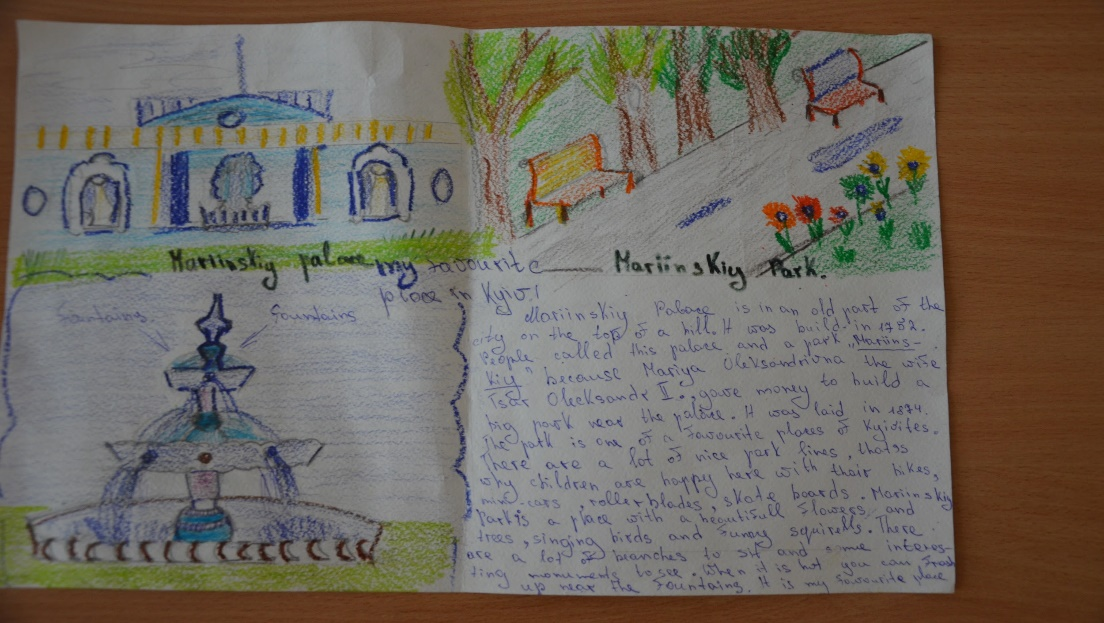 Mariinskiy palace my favourite
place in Kyiv!
Mariinskiy Park.
Fountains
Fountains
Mariinskiy Palace is in an old part of the
city on the top of a hill. It was build in 1752.
People called this palace and a park „Mariins-
kiy" because Mariya Oleksandrivna the wife
Tsar Oleksandr II., gave money to build a
big park near the palace. It was laid in 1874.
The park is one of a favourite places of Kyivites.
There are a lot of nice park lines, thatss
why children are happy here with their bikes,
mini-cars, rollerblades, skate boards. Mariinskiy
Park is a place with a beautifull flowers and
trees, singing birds and funny squirells. There
are a lot of branches to sit and some interes-
ting monuments to see. When it is hot you can fresh
up near the fountains. It is my favourite place